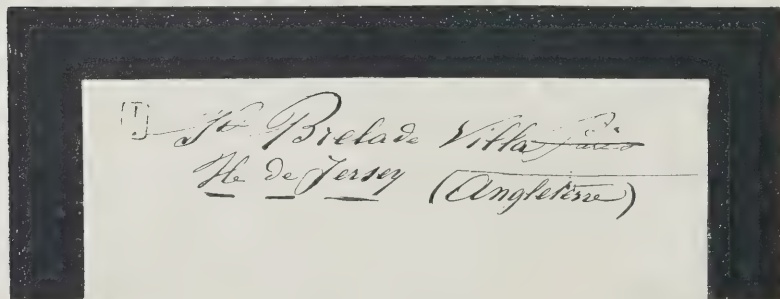 T
St Brelade Villa
Ile de Jersey (Angleterre)